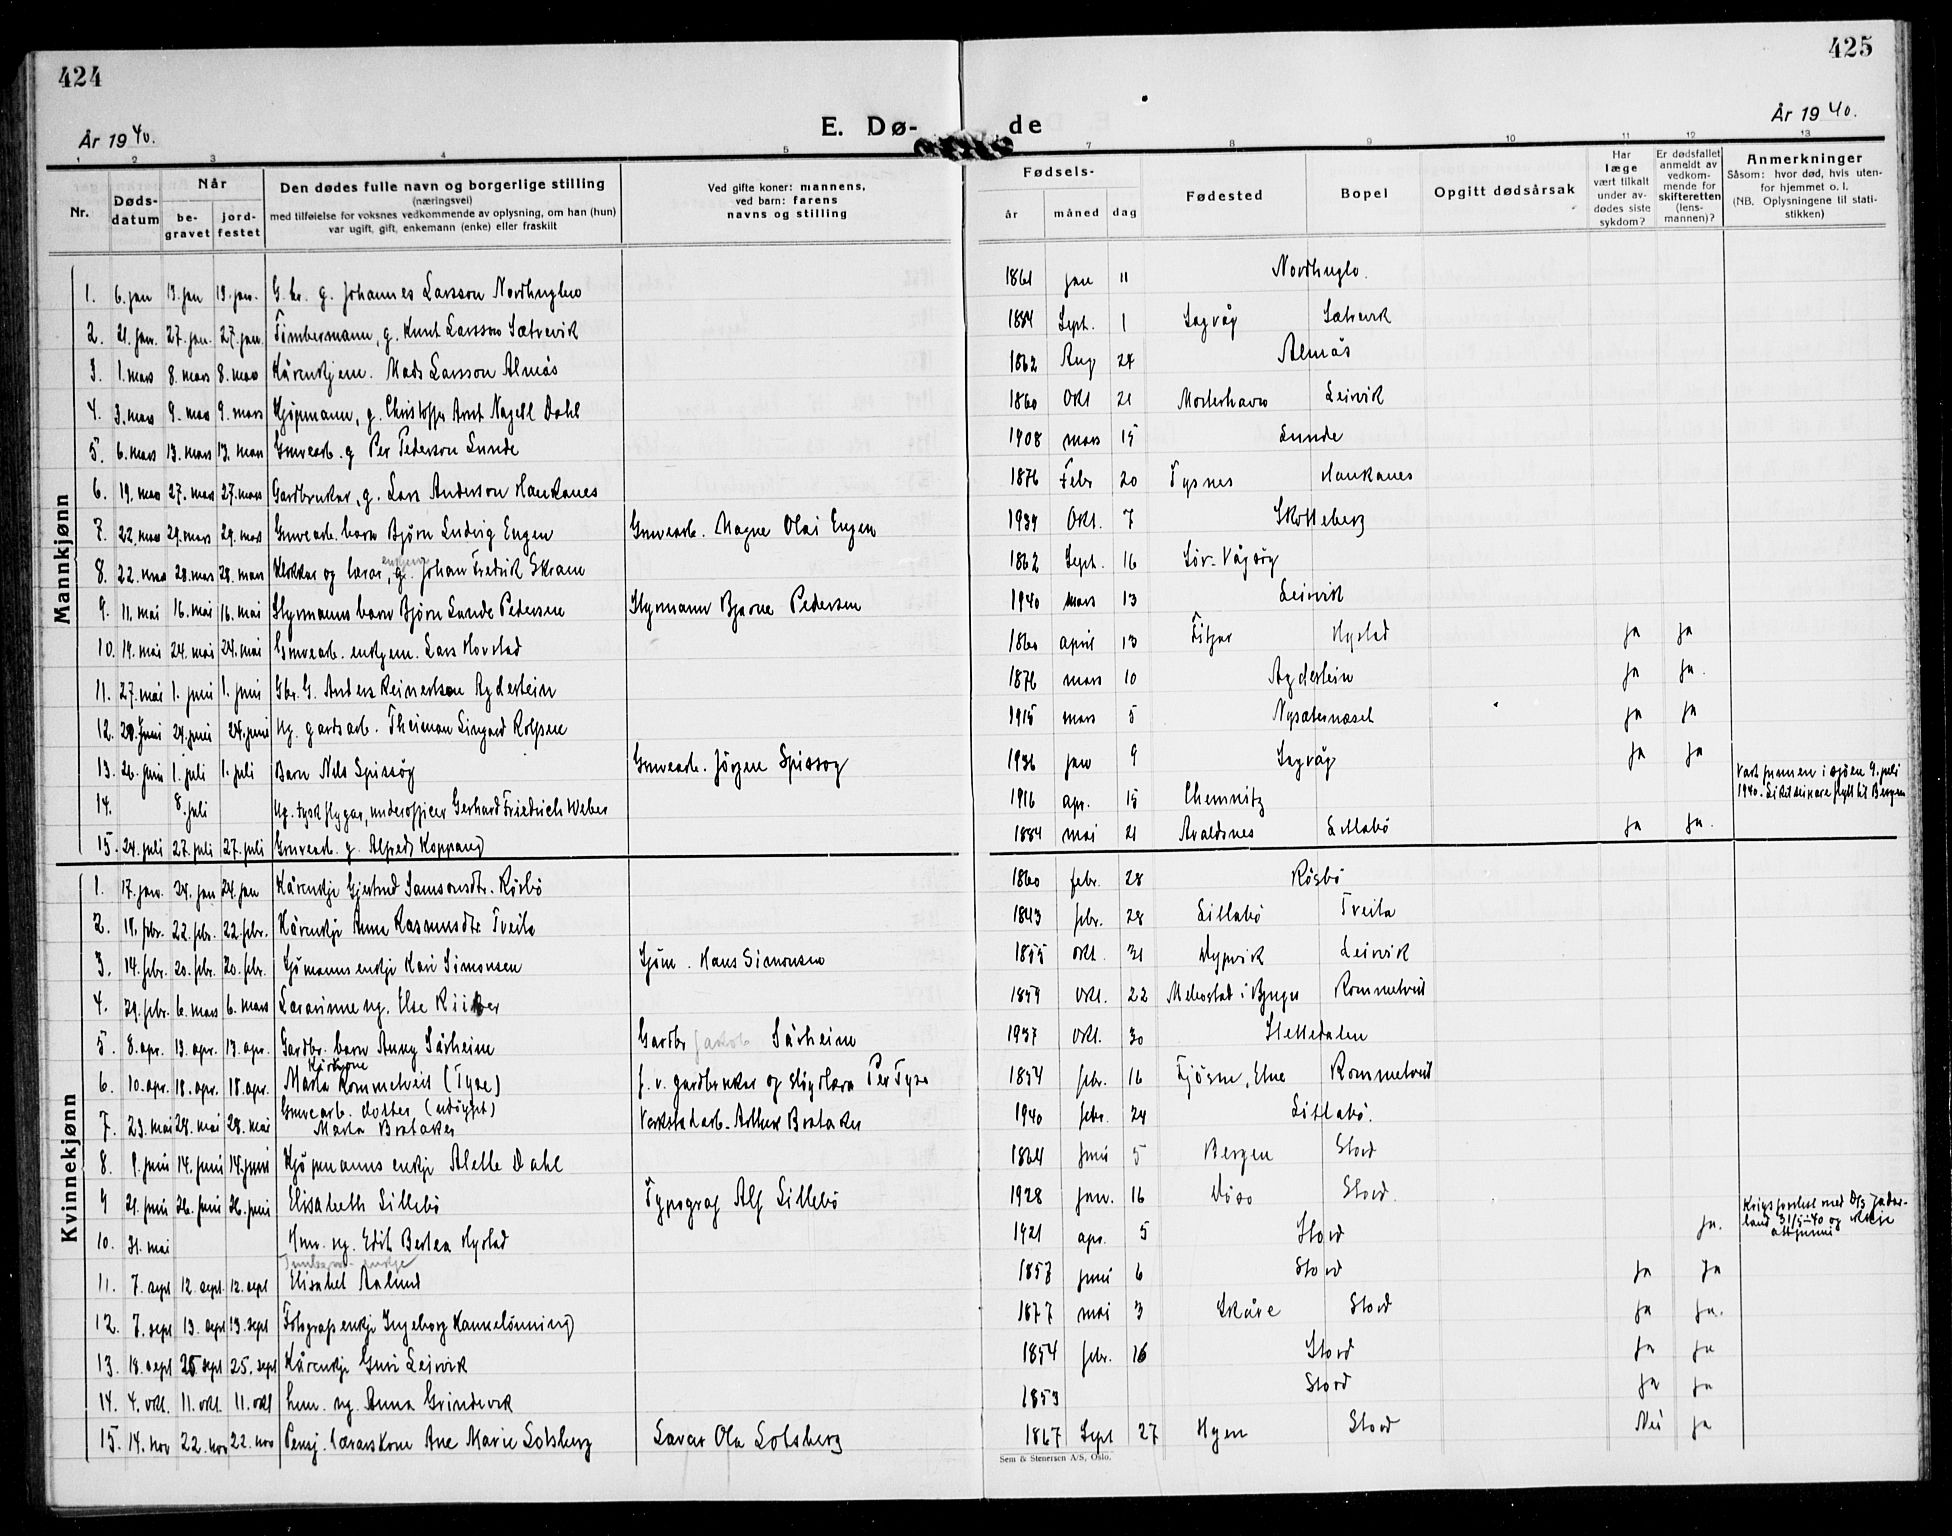 424
425
År 1940.
E. Dø-
de
År 1940.
1 2 3 4 5 7 8 9 10 11 12 13
Nr.
Døds-
datum
Når
be-
gravet
jord-
festet
Den dødes fulle navn og borgerlige stilling
(næringsvei)
med tilføielse for voksnes vedkommende av oplysning, om han (hun)
var ugift, gift, enkemann (enke) eller fraskilt
Ved gifte koner: mannens,
ved barn: farens
navns og stilling
Fødsels-
år måned dag
Fødested
Bopel
Opgitt dødsårsak
Har
læge
vært tilkalt
under av-
dødes siste
sykdom?
Er dødsfallet
anmeldt av
vedkom-
mende for
skifteretten
(lens-
mannen)?
Anmerkninger
Såsom: hvor død, hvis uten-
for hjemmet o. l.
(NB. Oplysningene til stati-
stikken)
Mannkjønn
1. 6. jan 13. jan 13. jan. G. br. g. Johannes Larsson Nordhuglo 1861 jan 11 Nordhuglo.
2. 21. jan. 27. jan. 27. jan. Tømbermann, g. Knut Larsson Sætrevik 1884 Sept. 1 Sagvåg Sætrevik
3. 1. mars 8. mars 8. mars Kårenkjem. Mads Larsson Almås 1862 Aug 24 Almås
4. 3. mars 9. mars 9. mars Kjøpmann, g. Christoffer Arnt Nagell Dahl 1860 Okt 21 Mosterhavn Leirvik
5. 6. mars 13. mars 13. mars Gruvearb. g Per Pederson Lunde 1908 mars 15 Lunde
6. 19. mars 27. mars 27. mars Gardbrukar, g. Lars Anderson Haukanes 1876 Febr 20 Tysnes Haukanes
7. 22. mars 29. mars 29. mars Gruvearb. barn Bjørn Ludvig Engen Gruvearb. Magne Olai Engen 1937 Okt. 7 Skotteberg
8. 22. mars 28. mars 28. mars Klokkar og lærar, enkjem g. Johan Fredrik Skram 1862 Sept. 16 Sør-Vågsøy
9. 11. mai 16. mai 16. mai Styrmanns barn Bjørn Lunde Pedersen Styrmann Bjarne Pedersen 1940 mars 13 Leirvik
10. 19. mai 24. mai 24. mai Gruvearb. enkjem. Lars Hovstad 1860 april 13 Fitjar Hystad ja ja
11. 27. mai 1. juni 1. juni Gbr. G. Anders Reinertson Agdestein 1876 mars 10 Agdestein ja ja.
12. 20. juni 24. juni 24. juni Ug. gardsarb. Theiman Lingard Rolfsne 1915 mars 5 ja ja
13. 26. juni 1. juli 1. juli Barn Nils Spissøy Gruvearb. Jørgen Spissøy 1936 jan 9 Sagvåg ja ja
14. 8. juli Ug. tysk flygar, underofficer Gerhard Friedrich Weber 1916 apr. 15 Chemnitz Vart funnen i sjøen 4. juli
1940. Liket seinare flytt til Bergen
15. 24. juli 27. juli 27. juli Gruvearb. g. Alfred Koppang 1884 mai 21 Avaldsnes Litlabø ja ja.
Kvinnekjønn
1. 17. jan. 24. jan 24. jan Kårenkje Gjertrud Samsonsdtr. Røsbø 1860 febr. 28 Røsbø
2. 14. febr. 22. febr. 22. febr. Kårenkje Anna Rasmusdtr Tveita 1843 febr. 28 Litlabø Tveita
3. 14. febr. 20. febr. 20. febr. Sjømanns enkje Kari Simonsen Sjøm. Hans Simonsen 1855 okt. 31 Dypvik Leirvik
4. 29. febr. 6. mars 6. mars Lærarinne ug. Else Riiber 1859 okt. 22 Rommetveit
5. 8. apr. 13. apr. 13. apr. Gardbr. barn Anny Sårheim Gardbr Jakob Sårheim 1937 okt. 30 Slettedalen
6. 10. apr. 18. apr. 18. apr. Kårkone
Marta Rommetveit (Tyse) f. v. gardbrukar og sløydlærar Per Tyse 1854 febr. 16 Fjøsne, Etne Rommetveit
7. 23. mai 28. mai 28. mai Gruvearb. dotter (udøypt)
Marta Brataker Verkstadarb. Arthur Brataker 1940 febr. 24 Litlabø.
8. 9. juni 14. juni 14. juni Kjøpmanns enkje Alette Dahl 1864 juni 5 Bergen Stord
9 21. juni 26. juni 26. juni Elisabeth Lillebø Typograf Alf Lillebø 1928 jan. 16 Stord
10. 31. mai Hmr. ug. Edit Bertea Hystad 1921 apr. 5 Stord ja. Krigsforlist med D/S Jadar-
land 31/5-40 og ikkje
attfunni
11. 7. sept 12. sept. 12. sept Tømberm. enkje
Elisabet Aalund 1857 juni 6 Stord ja ja
12. 7. sept 13. sept 13. sept Fotografenkje Ingeborg Haukelønning 1877 mai 3 Skåre Stord ja ja.
13. 18. sept 25 sept 25. sept Kårenkje Guri Leirvik 1854 febr. 16 Stord ja ja
14. 4. okt. 11. okt. 11. okt hmr. ug. Anna Grindevik 1853 Stord ja ja
15. 14. nov 22. nov 22. nov Pensj. lærarskone Ane Marie Lotsberg Lærar Ola Lotsberg 1867 Sept 27 Hyen Stord Nei ja
Sem & Stenersen A/S, Oslo.